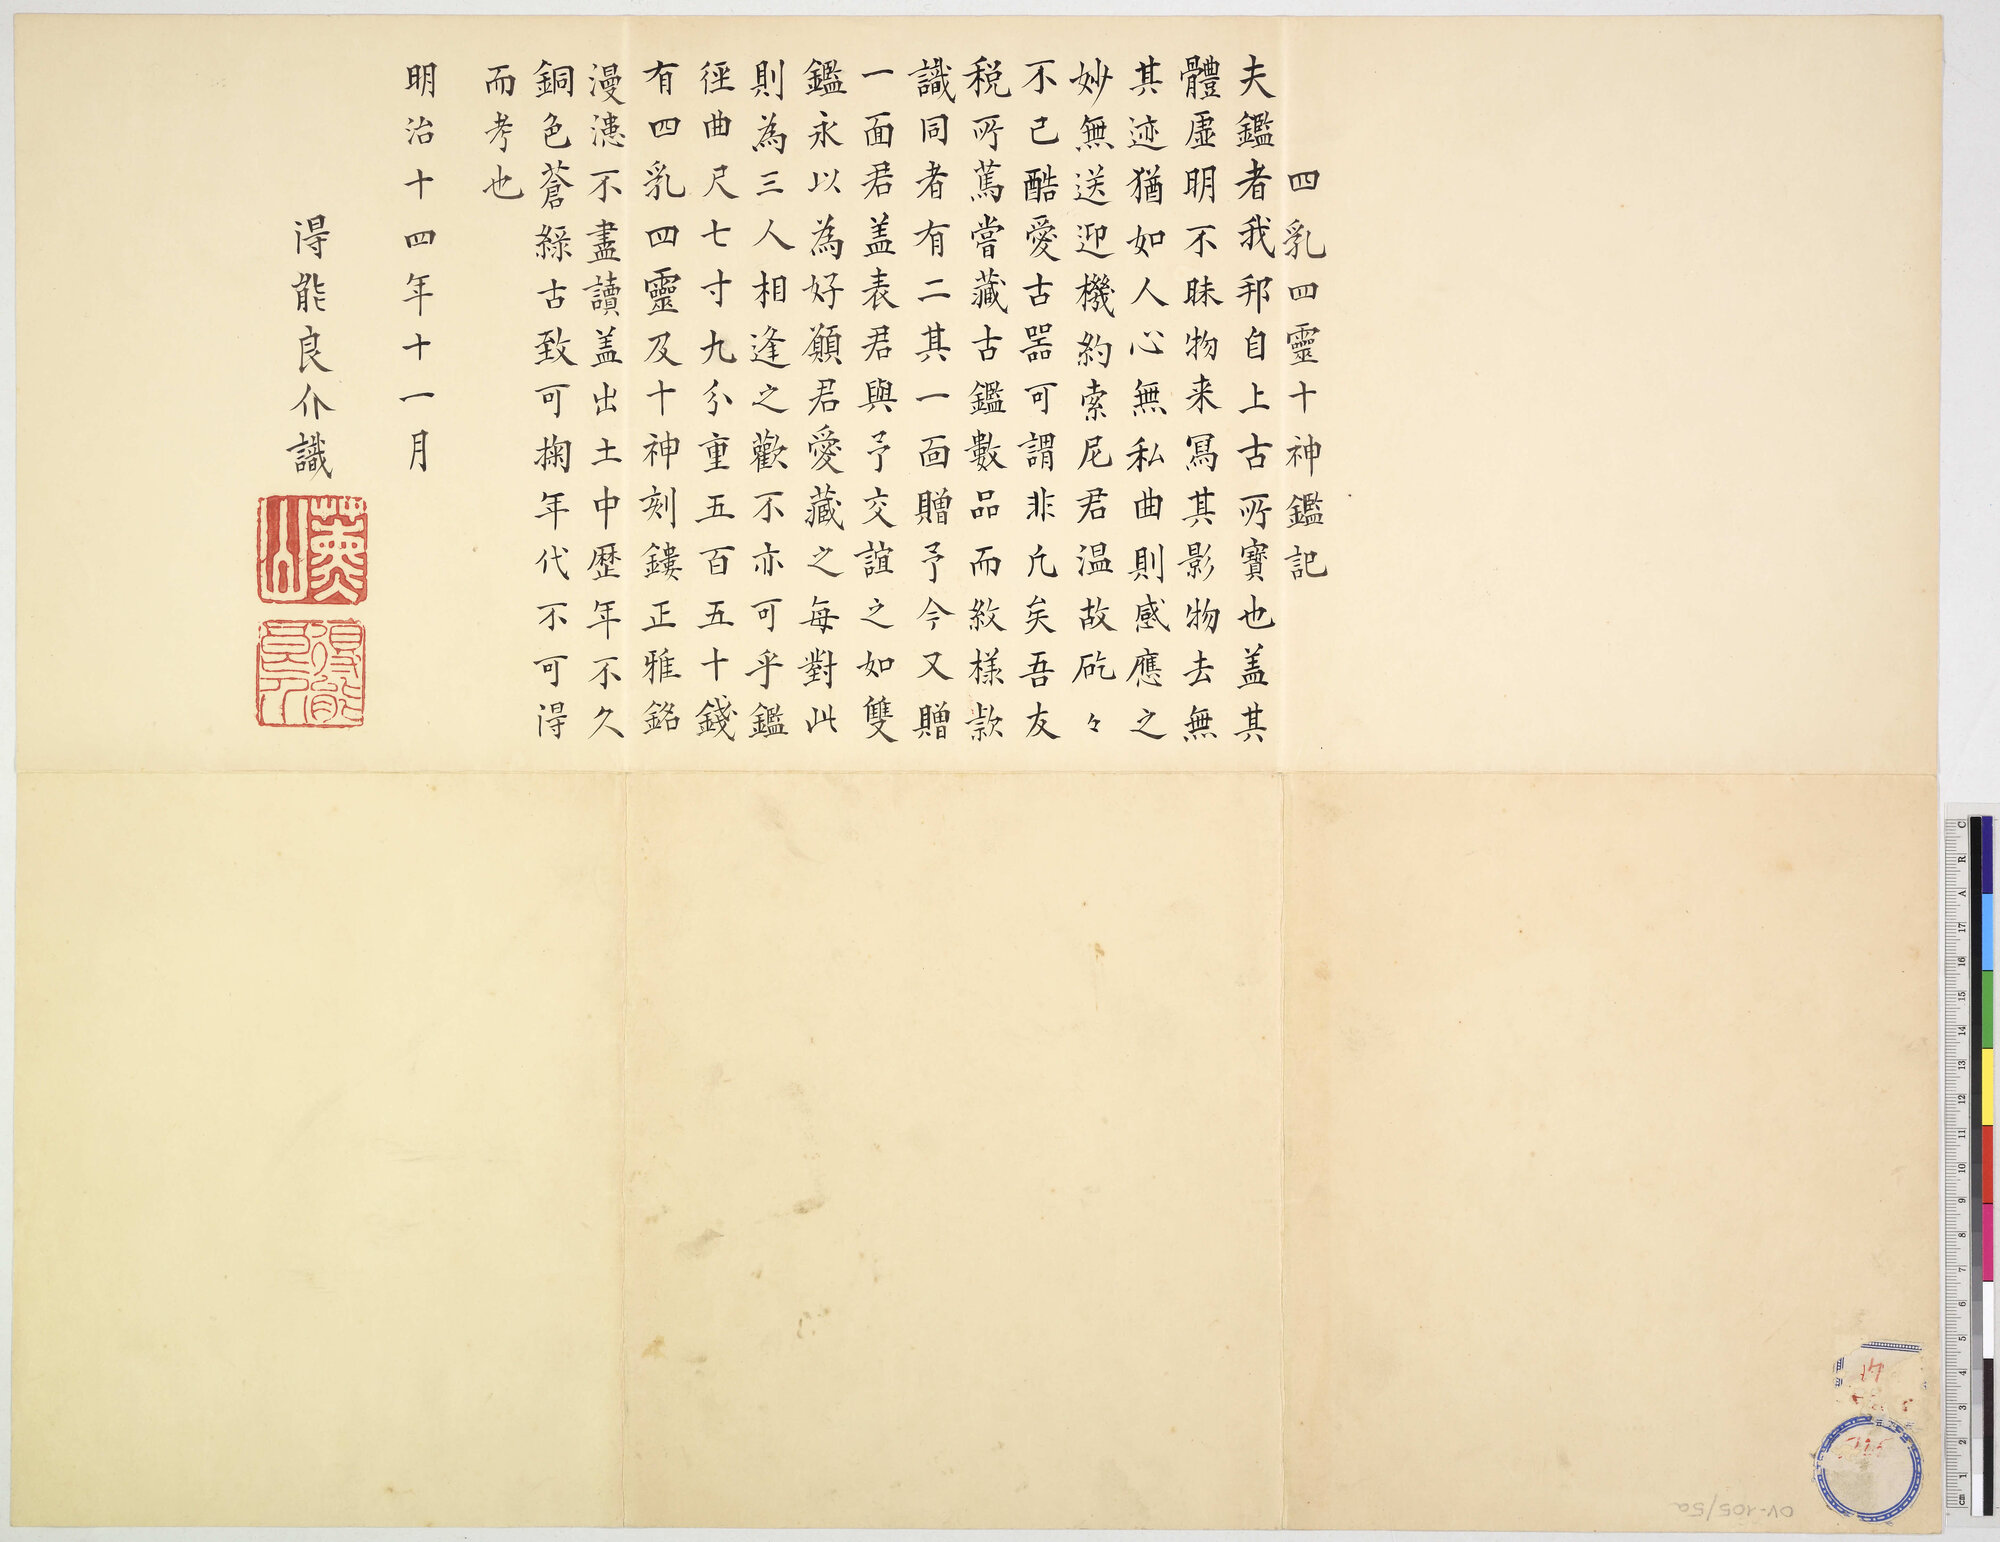 四乳四靈十神鑑記
夫鑑者我邦自上古所寶也盖其
體虛明不昧物来冩其影物去無
其迹猶如人心無私曲則感應之
妙無送迎機約索尼君温故矻々
不已酷愛古器可謂非凡矣吾友
税所篤嘗藏古鑑數品而紋様款
識同者有二其一面贈予今又贈
一面君盖表君與予交誼之如雙
鑑永以為好願君愛藏之每對此
則為三人相逢之歡不亦可乎鑑
徑曲尺七寸九分重五百五十錢
有四乳四靈及十神刻鏤正雅銘
漫漶不盡讀盖出土中歴年不久
銅色蒼綠古致可掬年代不可得
而考也
明治十四年十一月
得能良介識
薫山
得能良介
OV-105/5a